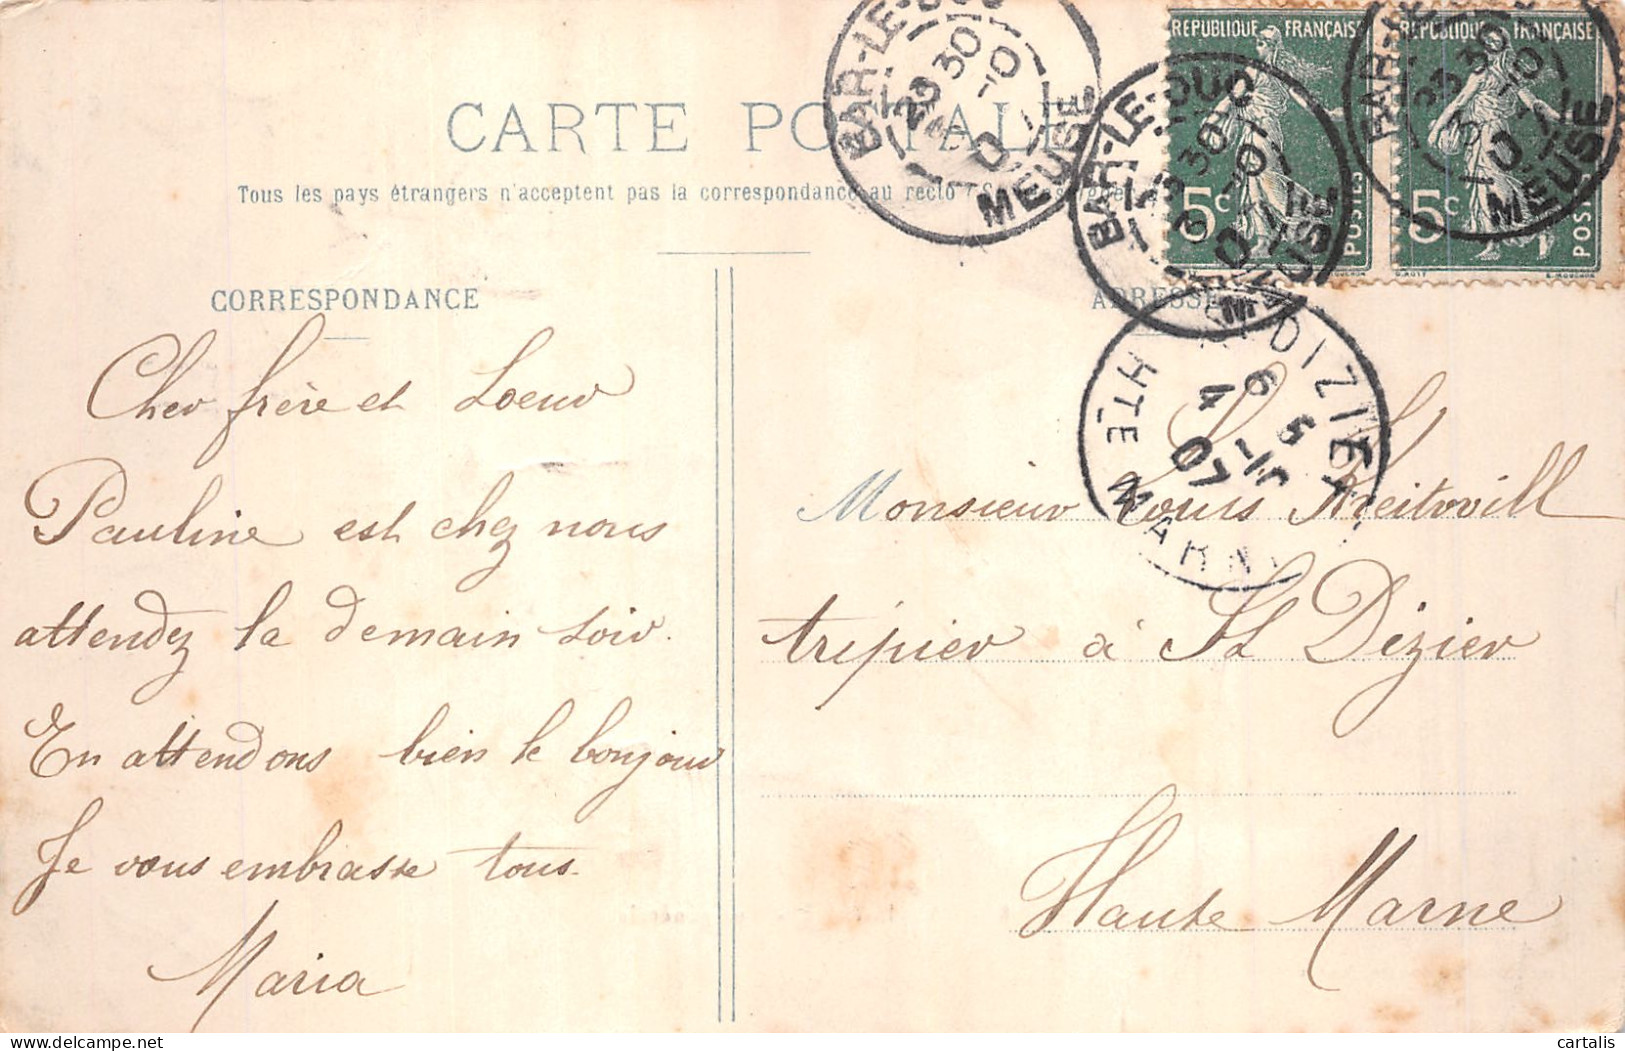 CARTE POSTALE
Tous les pays étrangers n'acceptent pas la correspondance au recto
CORRESPONDANCE
ADRESSE
Cher frère et Soeur
Pauline est chez nous
attendez la demain soir.
En attendons bien le bonjour
Je vous embrasse tous.
Maria
Monsieur Louis
tripier à St Dizier
Haute Marne
BAR-LE-DUC
MEUSE
BAR-LE-DUC
MEUSE
BAR-LE-
MEUSE
ST DIZIER
HTE MARNE
REPUBLIQUE FRANÇAISE
5c
POSTES
REPUBLIQUE FRANÇAISE
5c
POSTES
cartalis